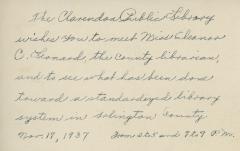 The Clarendon Public Library
wishes you to meet Miss Eleanor
C. Leonard, the county librarian,
and to see what has been done
toward a standardized library
system in Arlington County
Nov. 18, 1937 from 3 to 5 and 7 to 9 P.M.